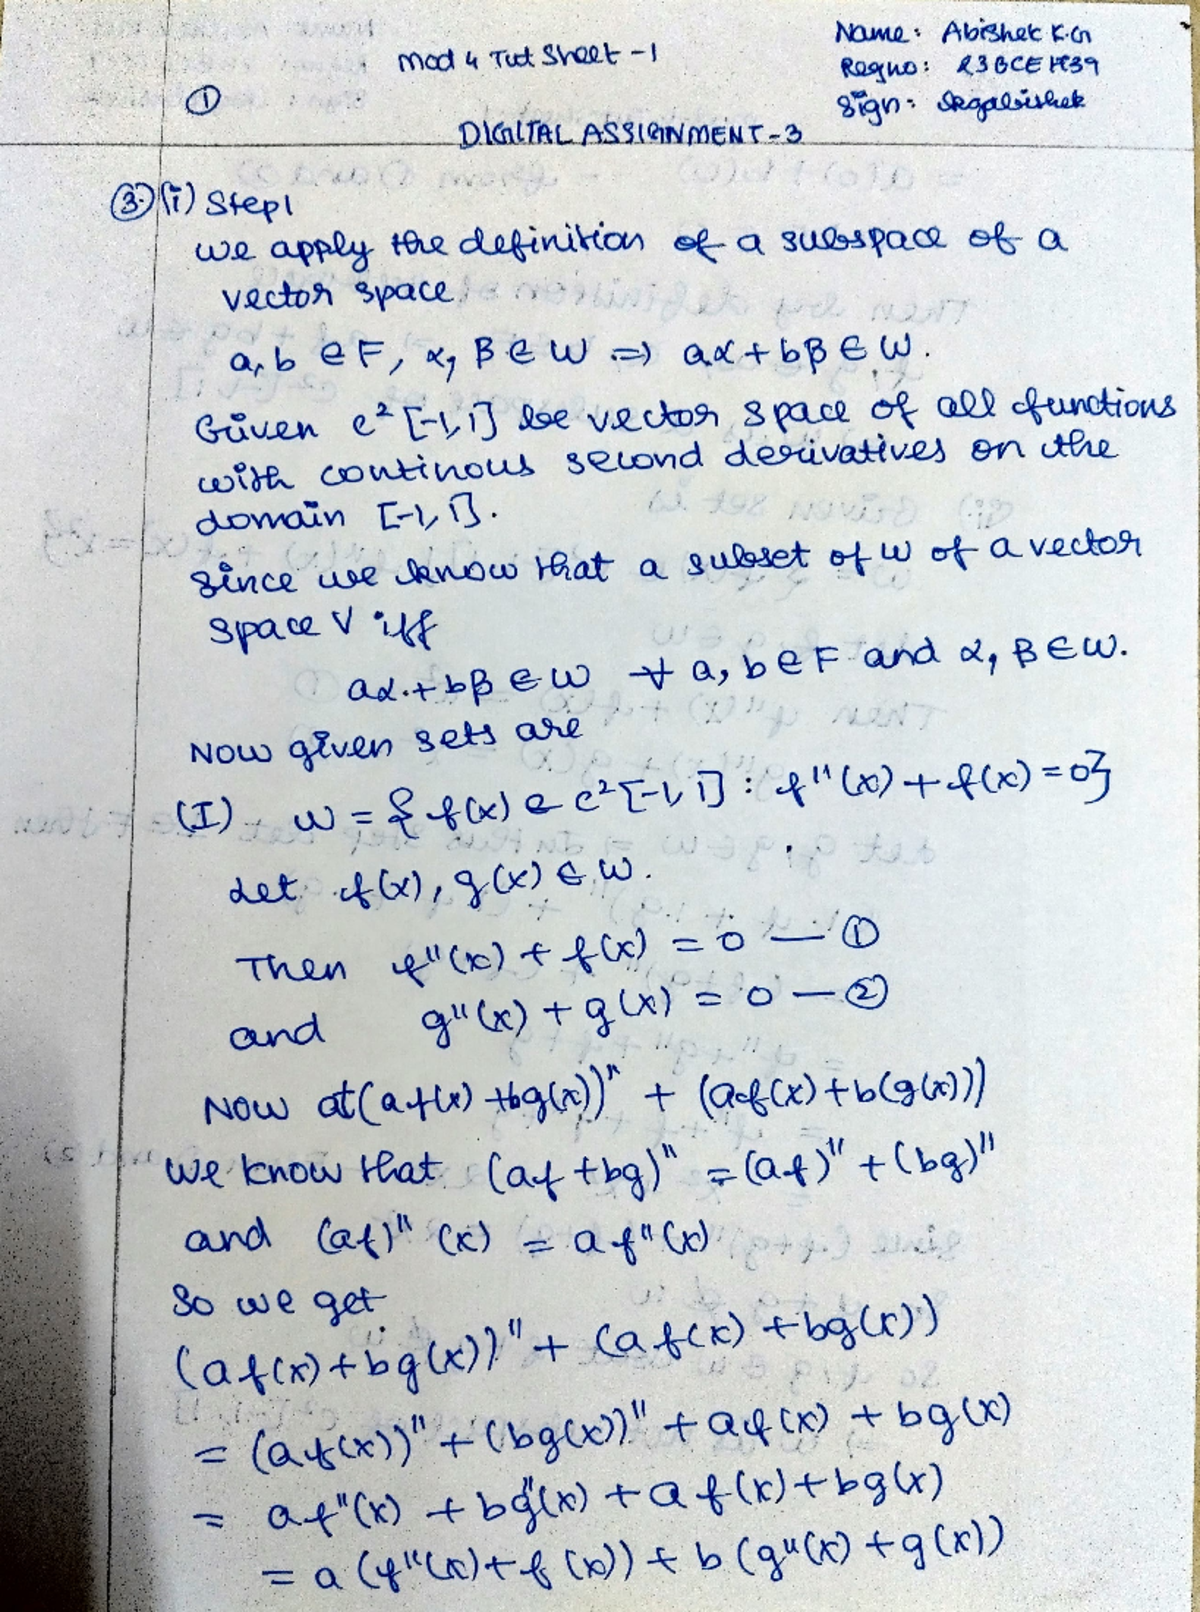 Mod 4 Tut Sheet - 1
Name: Abishek K.G
Regno:
Sign:
①
DIGITAL ASSIGNMENT - 3
③. (i) Step1
we apply the definition of a subspace of a
vector space
a, b ∈ F, α, β ∈ W ⇒ aα + bβ ∈ W.
Given c² [-1, 1] be vector space of all functions
with continous second derivatives on the
domain [-1, 1].
since we know that a subset of W of a vector
space V iff
aα + bβ ∈ W ∀ a, b ∈ F and α, β ∈ W.
Now given sets are
(I) W = { f(x) ∈ c² [-1, 1] : f''(x) + f(x) = 0}
Let f(x), g(x) ∈ W.
Then f''(x) + f(x) = 0 — ①
and g''(x) + g(x) = 0 — ②
Now at (af(x) + bg(x))'' + (af(x) + b(g(x)))
We know that (af + bg)'' = (af)'' + (bg)''
and (af)'' (x) = a f''(x)
So we get
(af(x) + bg(x))'' + (af(x) + bg(x))
= (af(x))'' + (bg(x))'' + af(x) + bg(x)
= af''(x) + bg''(x) + af(x) + bg(x)
= a (f''(x) + f(x)) + b (g''(x) + g(x))